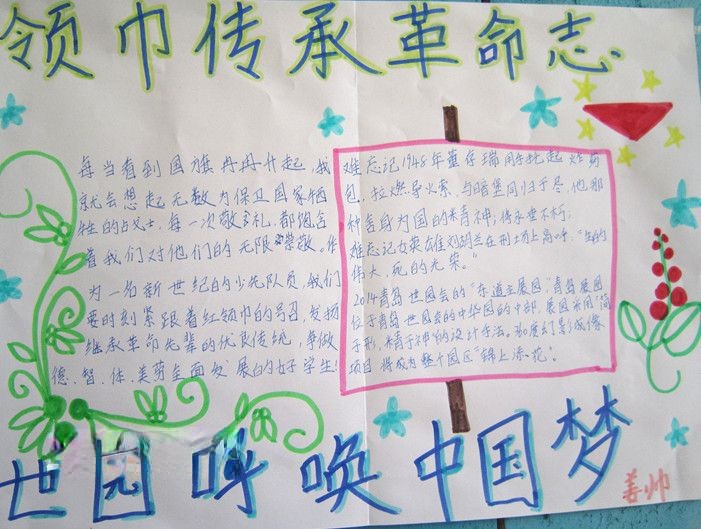 领巾传承革命志
每当看到国旗冉冉升起,我
就会想起无数为保卫国家牺
牲的战士,每一次敬礼,都饱含
着我们对他们的无限崇敬。作
为一名新世纪的少先队员,我们
要时刻紧跟着红领巾的号召,发扬
继承革命先辈的优良传统,争做
德、智、体、美劳全面发展的好学生!
难忘记1948年董存瑞用手托起炸药
包,拉燃导火索,与暗堡同归于尽,他那
种舍身为国的精神,传永垂不朽;
难忘记女英雄刘胡兰在刑场上高呼:“生的
伟大,死的光荣。”
2014青岛世园会的“东道主展园”青岛展园
位于青岛世园会的中华园的中部,展园采用“简
于形,精于神”的设计手法。360度幻影成像
项目将成为整个园区“锦上添花”。
世园呼唤中国梦
姜帅